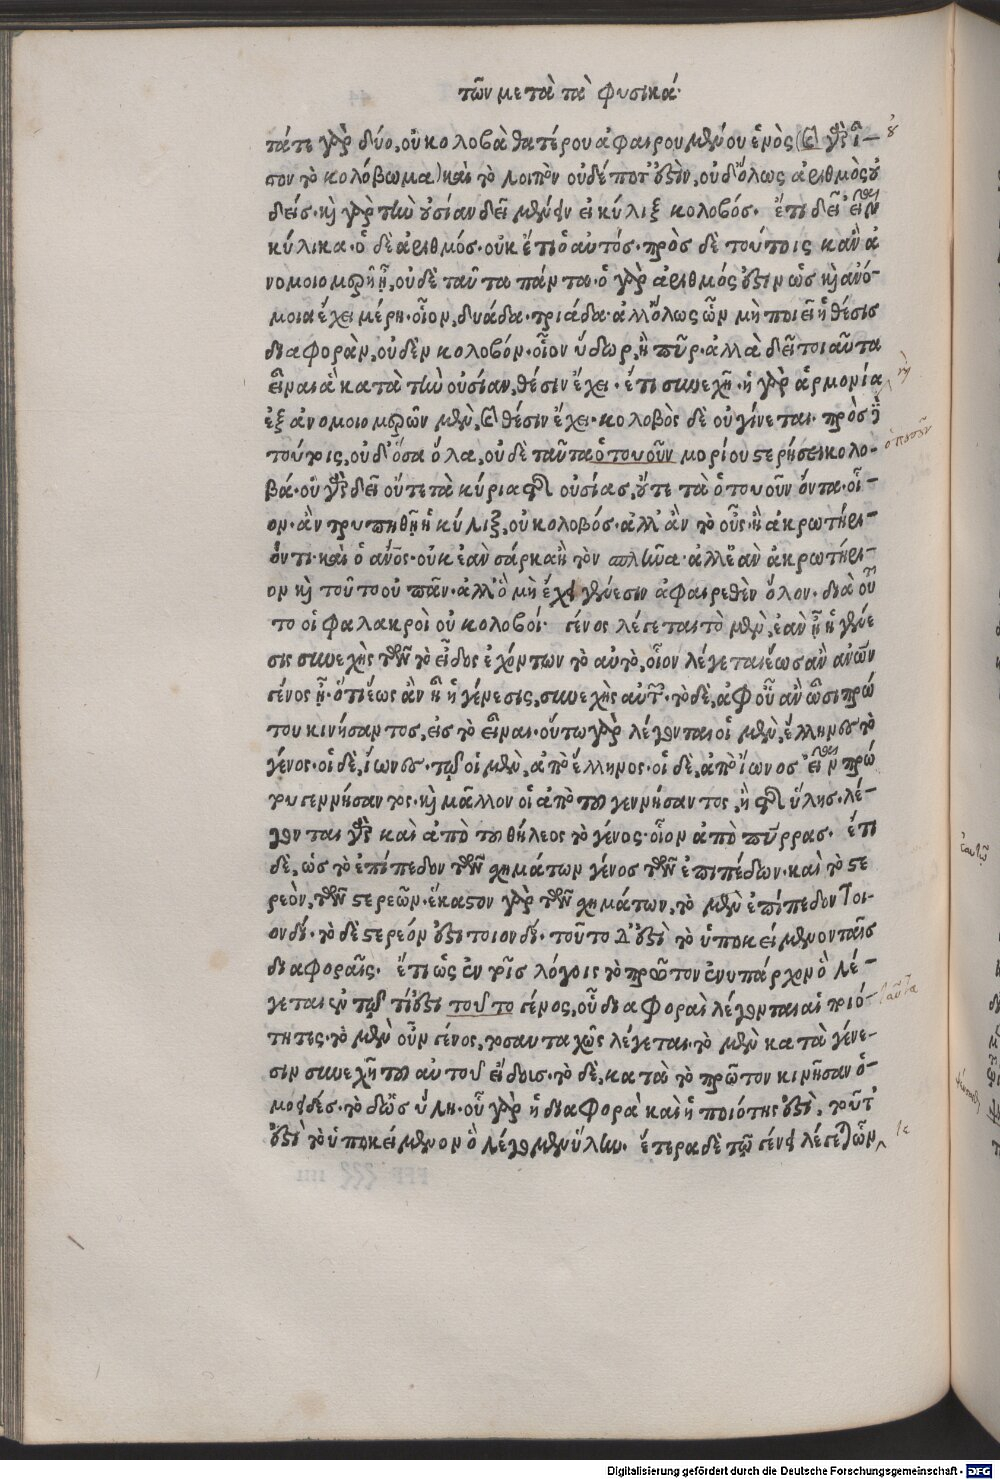 τῶν μετὰ τὰ φυσικά·
τά τε γὰρ δύο, οὐ κολοβὰ θατέρου ἀφαιρουμένου ἑνὸς (οὐ γὰρ ἴ-
σον τὸ κολόβωμα) καὶ τὸ λοιπὸν οὐδέποτ' ἐστὶν, οὐδ' ὅλως ἀριθμὸς οὐ
δείς· καὶ γὰρ τὴν οὐσίαν δεῖ μένειν εἰ κύλιξ κολοβός· ἔτι δεῖ εἶναι
κύλικα· ὁ δὲ ἀριθμός· οὐκ ἔτι ὁ αὐτός· πρὸς δὲ τούτοις κἂν ἀ
νομοιομερῆ ᾖ, οὐδὲ ταῦτα πάντα· ὁ γὰρ ἀριθμός ἐστιν ὡς καὶ ἀνό-
μοια ἔχει μέρη· οἷον, δυάδα· τριάδα· ἀλλ' ὅλως ὧν μὴ ποιεῖ ἡ θέσις
διαφορὰν, οὐδὲν κολοβόν· οἷον ὕδωρ, ἢ πῦρ· ἀλλὰ δεῖ τοιαῦτα
εἶναι ἃ κατὰ τὴν οὐσίαν, θέσιν ἔχει· ἔτι συνεχῆ· ἡ γὰρ ἁρμονία
ἐξ ἀνομοιομερῶν μὲν, καὶ θέσιν ἔχει· κολοβὸς δὲ οὐ γίνεται· πρὸς
τούτοις, οὐδ' ὅσα ὅλα, οὐδὲ ταῦτα ὁτουοῦν μορίου στερήσει κολο-
βά· οὐ γὰρ δεῖ οὔτε τὰ κύρια τῆς οὐσίας, οὔτε τὰ ὁτουοῦν ὄντα· οἷ-
ον· ἂν τρυπηθῇ ἡ κύλιξ, οὐ κολοβός· ἀλλ' ἂν τὸ οὖς· ἢ ἀκρωτήρι-
όν τι· καὶ ὁ ἄνος· οὐκ ἐὰν σάρκα ἢ τὸν σπλῆνα· ἀλλ' ἐὰν ἀκρωτήρι-
ον καὶ τοῦτο οὐ πᾶν· ἀλλ' ὃ μὴ ἔχει γένεσιν ἀφαιρεθὲν ὅλον· διὰ τοῦ
το οἱ φαλακροὶ οὐ κολοβοί· γένος λέγεται τὸ μὲν, ἐὰν ᾖ ἡ γένε
σις συνεχὴς τῶν τὸ εἶδος ἐχόντων τὸ αὐτὸ, οἷον λέγεται ἕως ἂν ἀνῶν
γένος ᾖ· ὅτι ἕως ἂν ᾖ ἡ γένεσις, συνεχὴς αὐτῶν· τὸ δὲ, ἀφ' οὗ ἂν ὦσι πρώ
του κινήσαντος, εἰς τὸ εἶναι· οὕτω γὰρ λέγονται οἱ μὲν, ἕλληνες τὸ
γένος· οἱ δὲ, ἴωνες· τῷ οἱ μὲν, ἀπὸ ἕλληνος· οἱ δὲ, ἀπὸ ἴωνος εἶναι πρώ
του γεννήσαντος· καὶ μᾶλλον οἱ ἀπὸ τοῦ γεννήσαντος, ἢ τῆς ὕλης· λέ-
γονται γὰρ καὶ ἀπὸ τοῦ θήλεος τὸ γένος· οἷον ἀπὸ πύρρας· ἔτι
δὲ, ὡς τὸ ἐπίπεδον τῶν σχημάτων γένος τῶν ἐπιπέδων· καὶ τὸ στε
ρεὸν, τῶν στερεῶν· ἕκαστον γὰρ τῶν σχημάτων, τὸ μὲν ἐπίπεδον τοι-
ονδί· τὸ δὲ στερεόν ἐστι τοιονδί· τοῦτο δ' ἐστὶ τὸ ὑποκείμενον ταῖς
διαφοραῖς· ἔτι ὡς ἐν τοῖς λόγοις τὸ πρῶτον ἐνυπάρχον ὃ λέ-
γεται ἐν τῷ τί ἐστι τοῦτο γένος, οὗ διαφοραὶ λέγονται αἱ ποιό-
τητες· τὸ μὲν οὖν γένος, τοσαυταχῶς λέγεται· τὸ μὲν κατὰ γένε-
σιν συνεχῆ τοῦ αὐτοῦ εἴδους· τὸ δὲ, κατὰ τὸ πρῶτον κινῆσαν ὁ-
μοειδές· τὸ δ' ὡς ὕλη· οὗ γὰρ ἡ διαφορὰ καὶ ἡ ποιότης ἐστὶ, τοῦτ'
ἐστὶ τὸ ὑποκείμενον ὃ λέγομεν ὕλην· ἕτερα δὲ τῷ γένει λέγεται ὧν
Digitalisierung gefördert durch die Deutsche Forschungsgemeinschaft - DFG